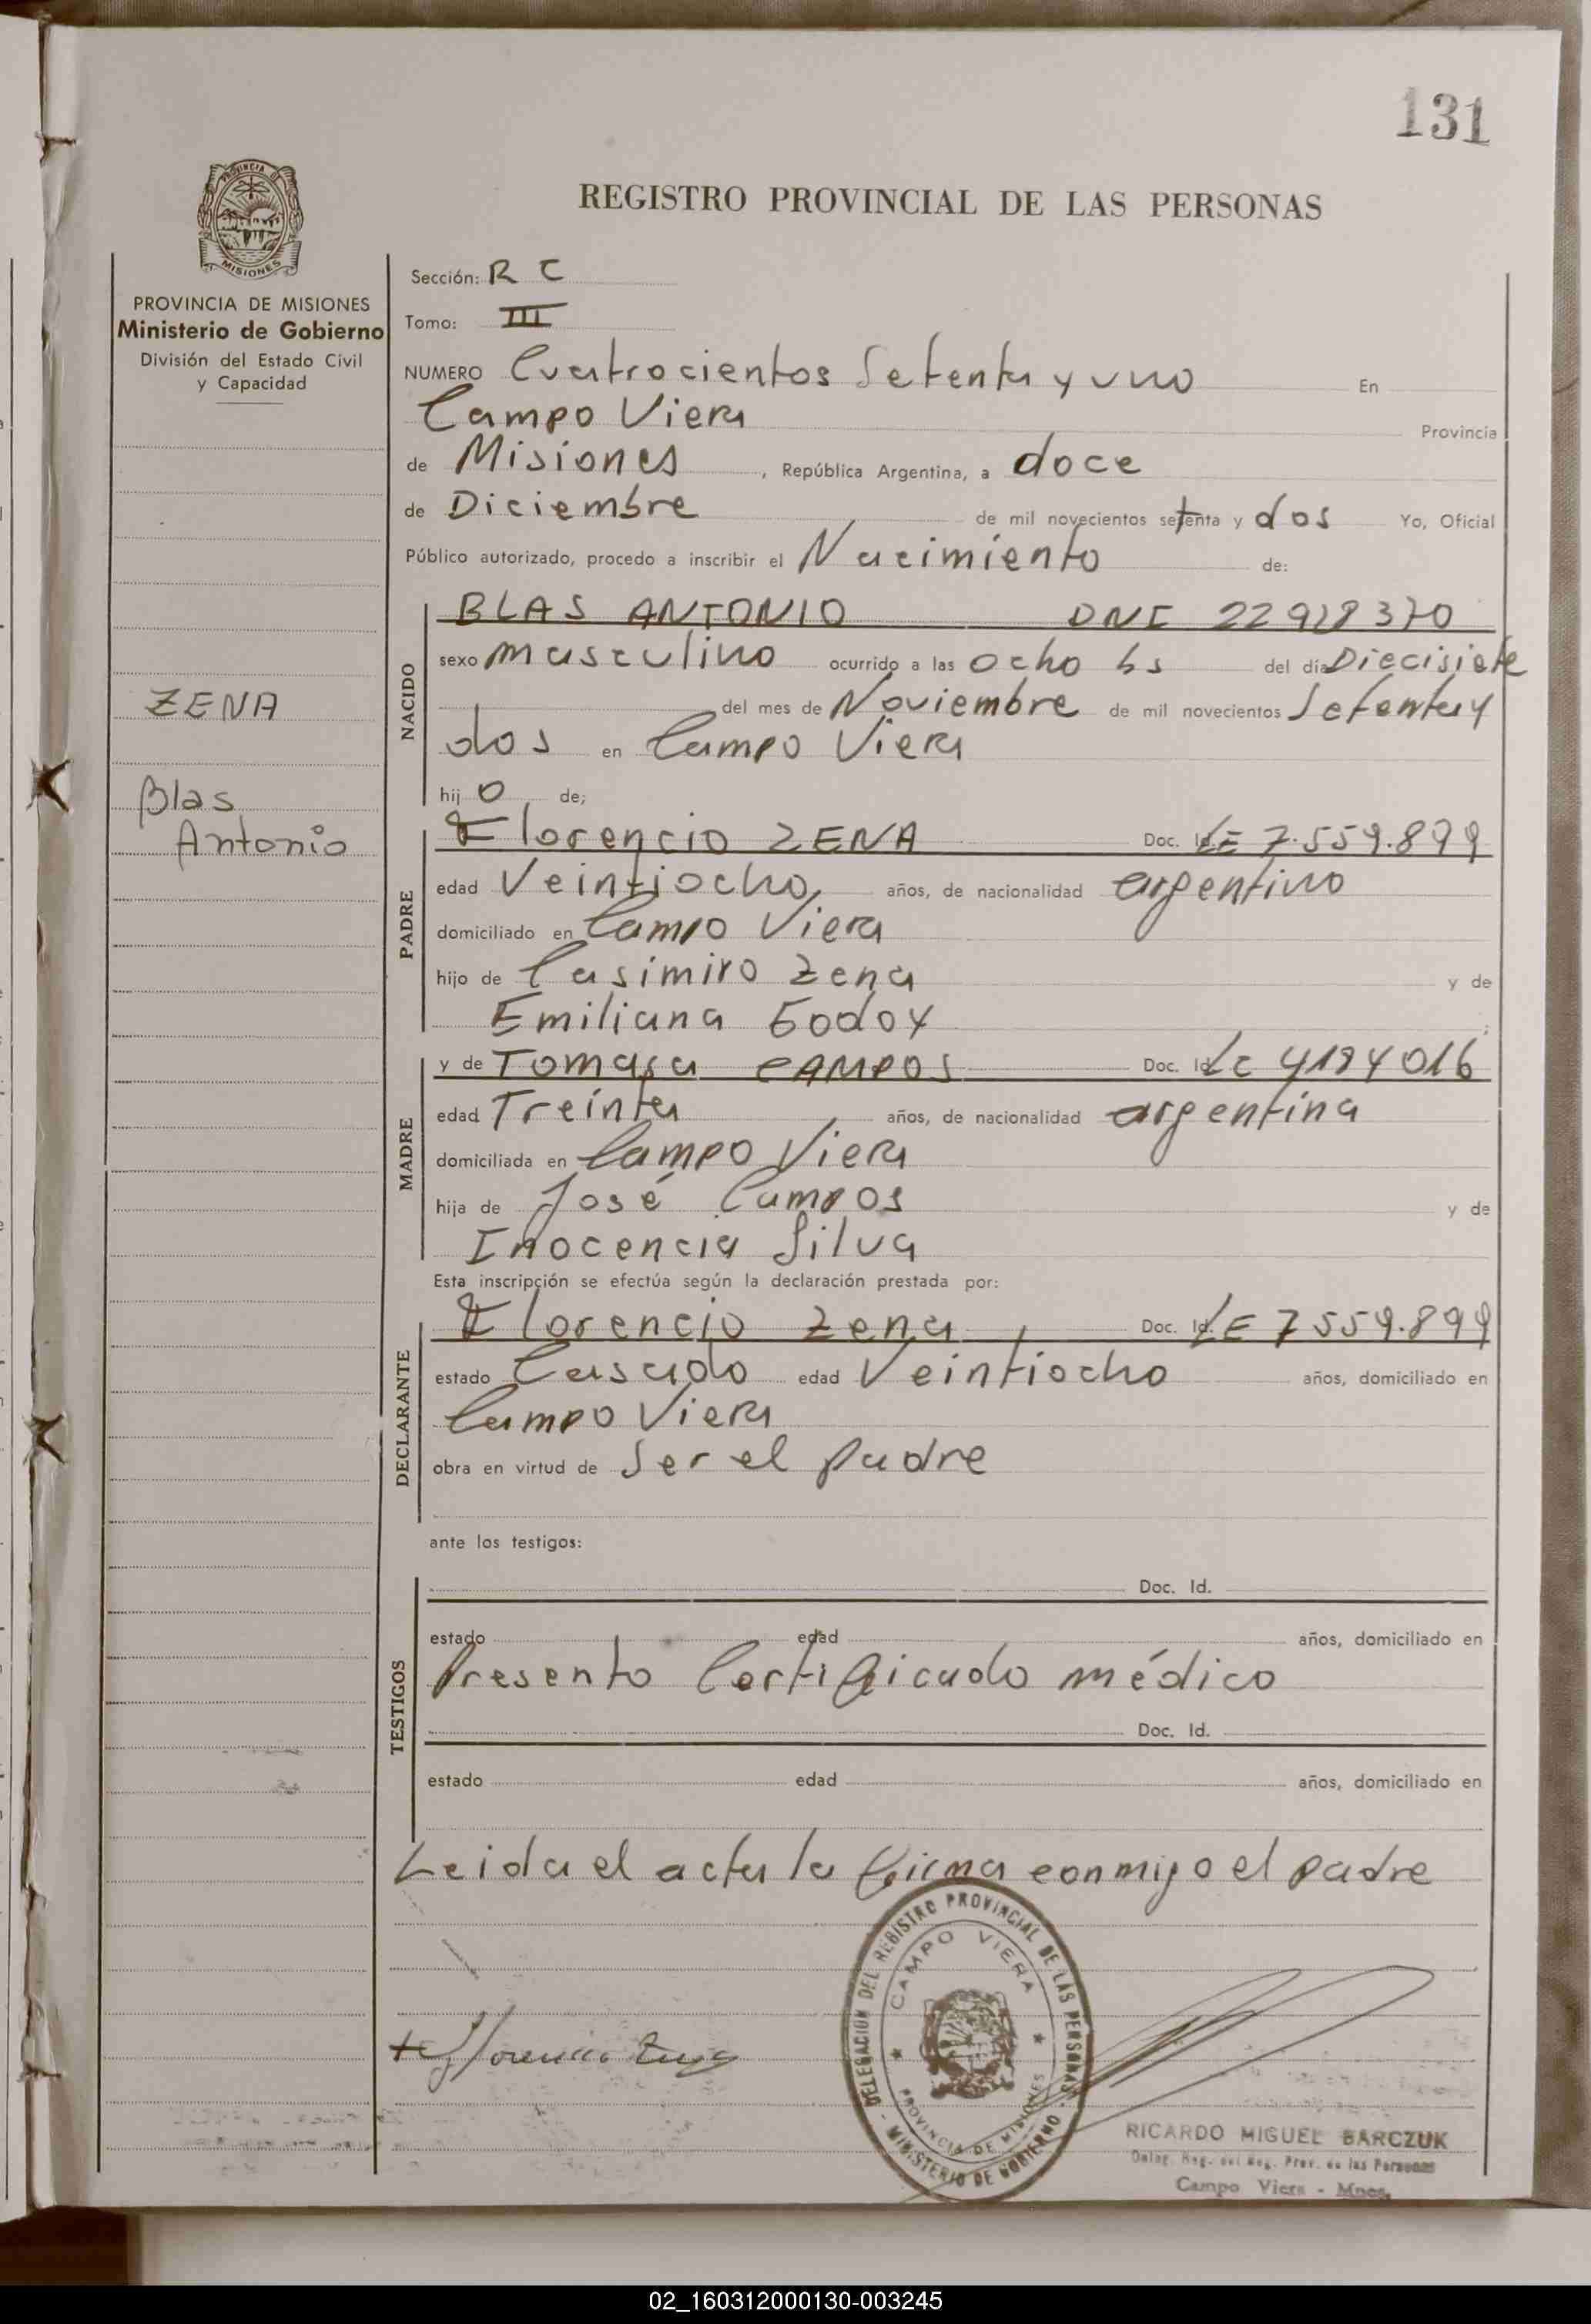 131
PROVINCIA DE
MISIONES
PROVINCIA DE MISIONES
Ministerio de Gobierno
División del Estado Civil
y Capacidad
ZENA
Blas
Antonio
REGISTRO PROVINCIAL DE LAS PERSONAS
Sección: R C
Tomo: III
NUMERO Cuatrocientos Setenta y uno En
Campo Viera Provincia
de Misiones, República Argentina, a doce
de Diciembre de mil novecientos setenta y dos Yo, Oficial
Público autorizado, procedo a inscribir el Nacimiento de:
NACIDO
BLAS ANTONIO DNI 22928370
sexo masculino ocurrido a las ocho hs del día Diecisiete
del mes de Noviembre de mil novecientos Setenta y
dos en Campo Viera
hij o de;
PADRE
Florencio ZENA Doc. LE 7.559.899
edad Veintiocho años, de nacionalidad argentino
domiciliado en Campo Viera
hijo de Casimiro Zena y de
Emiliana Godoy ;
MADRE
y de Tomasa CAMPOS Doc. Id. LC 4184016
edad Treinta años, de nacionalidad argentina
domiciliada en Campo Viera
hija de José Campos y de
Inocencia Silva
Esta inscripción se efectúa según la declaración prestada por:
DECLARANTE
Florencio Zena, Doc. Id. LE 7559.899
estado Casado edad Veintiocho años, domiciliado en
Campo Viera
obra en virtud de Ser el padre
ante los testigos:
TESTIGOS
Doc. Id.
estado edad años, domiciliado en
Presento Certificado médico
Doc. Id.
estado edad años, domiciliado en
Leida el acta la firma conmigo el padre
Florencio Zena
DELEGACION DEL REGISTRO PROVINCIAL DE LAS PERSONAS
CAMPO VIERA
PROVINCIA DE MISIONES
MINISTERIO DE GOBIERNO
RICARDO MIGUEL BARCZUK
Deleg. Reg. del Reg. Prov. de las Personas
Campo Viera - Mnes.
02_160312000130-003245